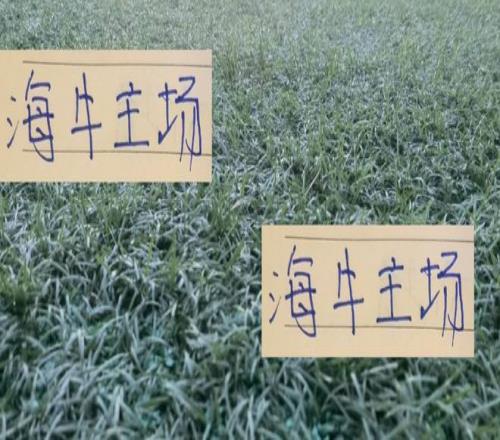 海牛主场
海牛主场